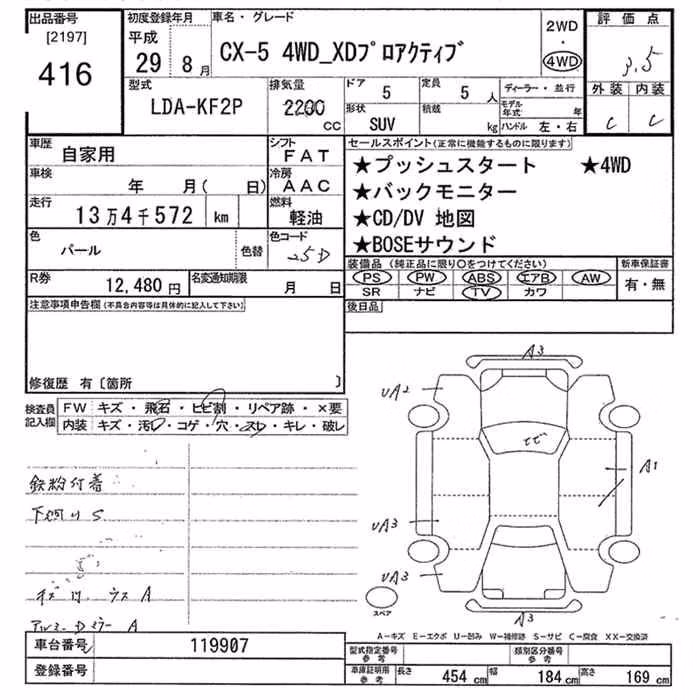 出品番号 初度登録年月 車名・グレード 評価点
[2197] 平成 2WD
416 29 8月 CX-5 4WD_XDプロアクティブ ・ 3.5
4WD
型式 排気量 ドア 5 定員 5 人 ディーラー・並行 外装 内装
LDA-KF2P 2200 CC 形状 SUV 積載 kg モデル年式 年 C C
ハンドル 左・右
車歴 自家用 シフト FAT セールスポイント(正常に機能するものに限ります)
車検 年 月( 日) 冷房 AAC ★プッシュスタート ★4WD
走行 13万4千572 km 燃料 軽油 ★バックモニター
色 パール 色替 色コード 25D ★CD/DV 地図
★BOSEサウンド
R券 12,480円 名変通知期限 月 日 装備品(純正品に限り○をつけてください) 新車保証書
PS PW ABS エアB AW 有・無
SR ナビ TV カワ
注意事項申告欄(不具合内容等は具体的に記入して下さい) 後日品
修復歴 有〔箇所 〕
検査員記入欄 FW キズ・飛石・ヒビ割・リペア跡・×要
内装 キズ・汚れ・コゲ・穴・スレ・キレ・破レ
A3
UA2
A1
鉄粉付着
下廻りS
UA3
UA3
A3
スペア
A
A
A－キズ E－エクボ U－凹み W－補修跡 S－サビ C－腐食 XX－交換済
車台番号 119907 型式指定番号 参考 類別区分番号 参考
登録番号 車庫証明用 参考 長さ 454 cm 幅 184 cm 高さ 169 cm